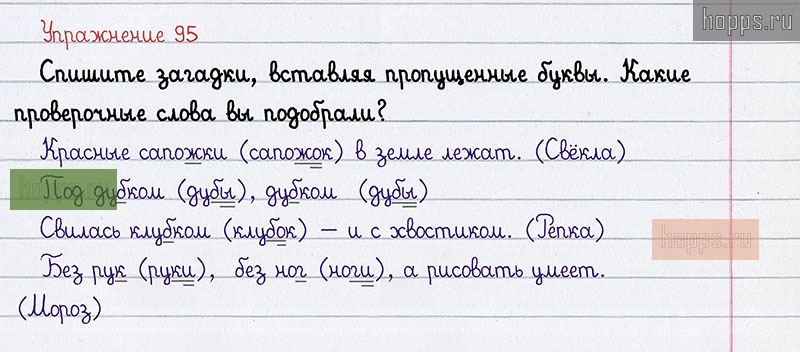 hopps.ru
Упражнение 95
Спишите загадки, вставляя пропущенные буквы. Какие
проверочные слова вы подобрали?
Красные сапожки (сапожок) в земле лежат. (Свёкла)
Под дубком (дубы), дубком (дубы)
Свилась клубком (клубок) – и с хвостиком. (Репка)
hopps.ru
Без рук (руки), без ног (ноги), а рисовать умеет.
(Мороз)